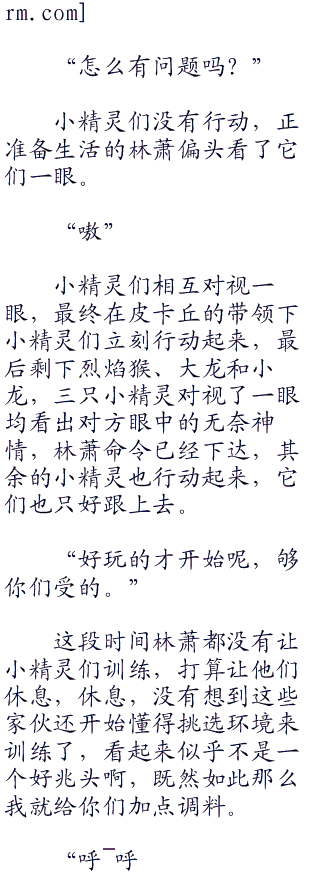 rm.com]
“怎么有问题吗？”
小精灵们没有行动，正
准备生活的林萧偏头看了它
们一眼。
“嗷”
小精灵们相互对视一
眼，最终在皮卡丘的带领下
小精灵们立刻行动起来，最
后剩下烈焰猴、大龙和小
龙，三只小精灵对视了一眼
均看出对方眼中的无奈神
情，林萧命令已经下达，其
余的小精灵也行动起来，它
们也只好跟上去。
“好玩的才开始呢，够
你们受的。”
这段时间林萧都没有让
小精灵们训练，打算让他们
休息，休息，没有想到这些
家伙还开始懂得挑选环境来
训练了，看起来似乎不是一
个好兆头啊，既然如此那么
我就给你们加点调料。
“呼¯呼